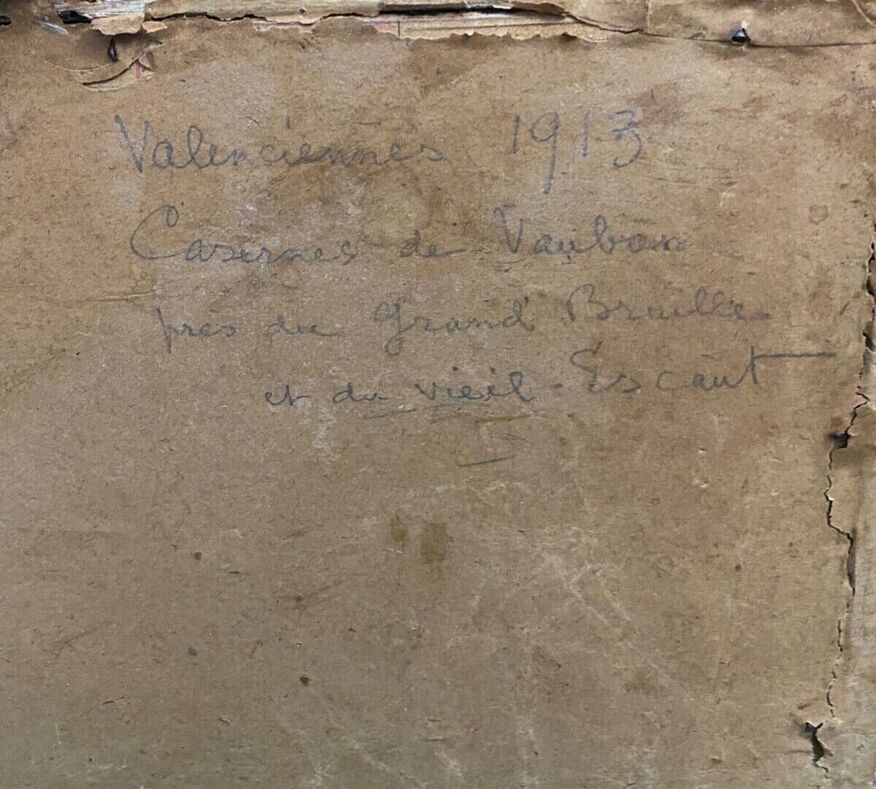 Valenciennes 1913
Casernes de Vauban
près du Grand Bruille
et du vieil Escaut